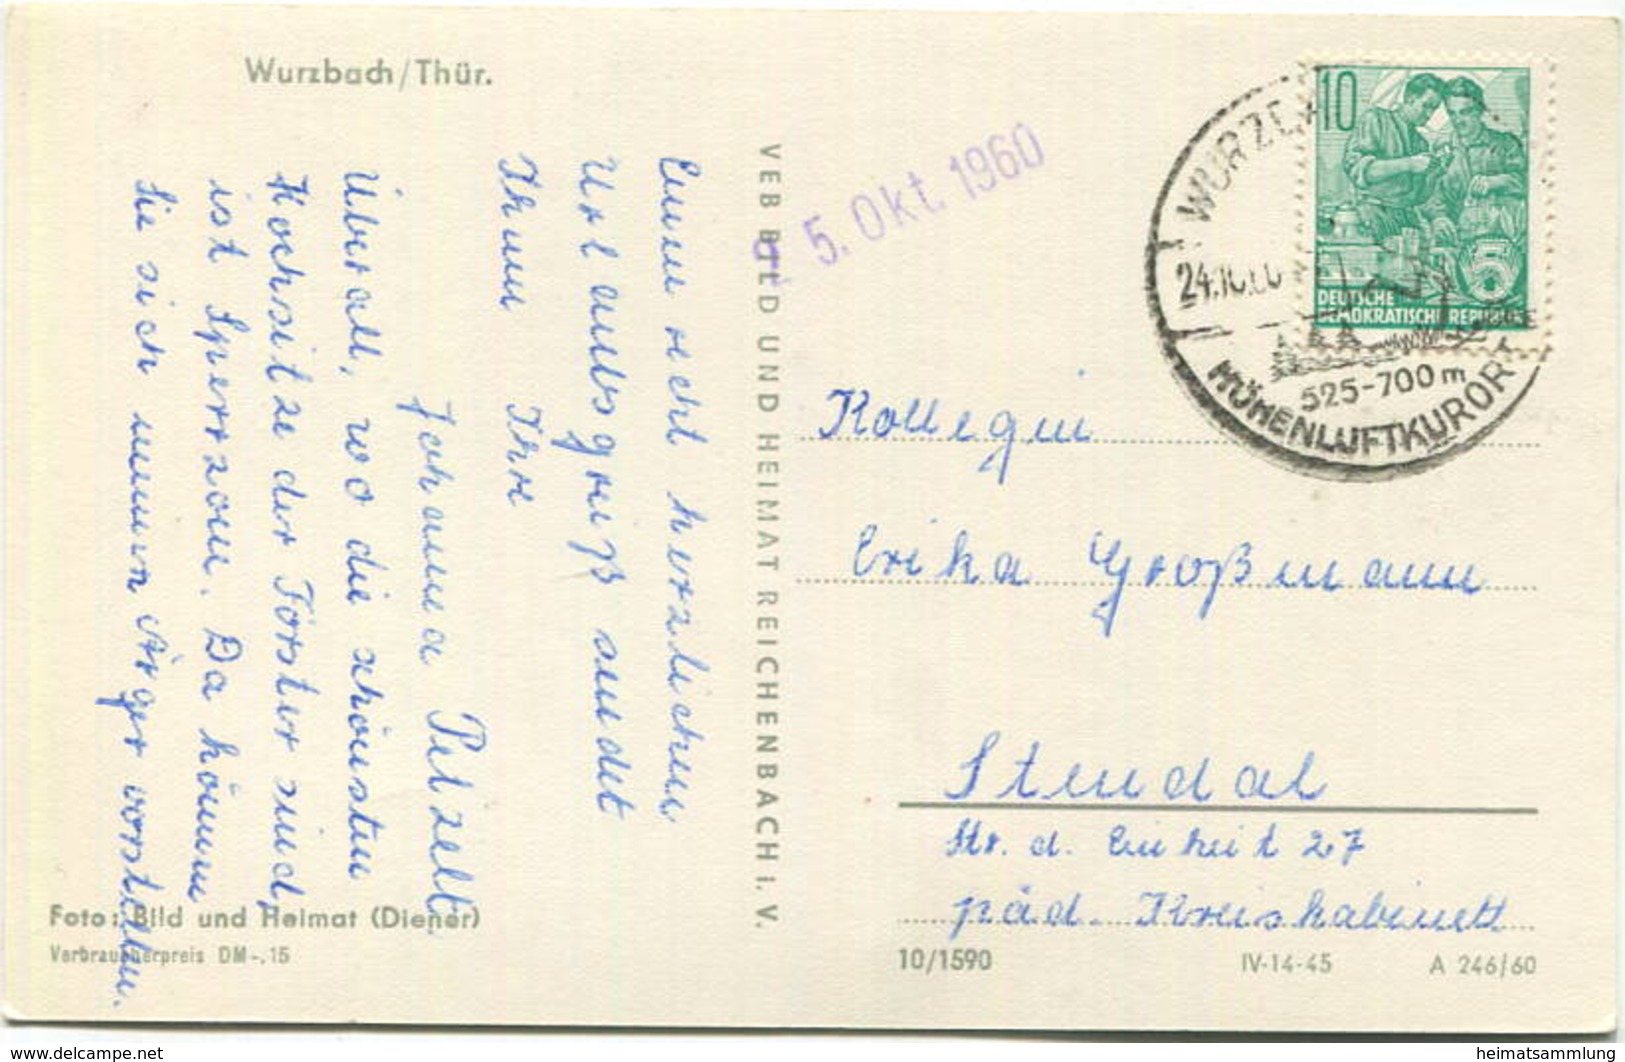 Wurzbach/Thür.
Einen recht herzlichen
Urlaubsgruß sendet
Ihnen Ihre
Johanna Petzelt
Überall, wo die schönsten
Hochsitze der Förster sind,
ist Sperrzone. Da können
Sie sich meinen Ärger vorstellen.
Foto: Bild und Heimat (Diener)
Verbraucherpreis DM -,15
VEB BILD UND HEIMAT REICHENBACH I. V.
5. Okt. 1960
24.10.60
525-700 m
HÖHENLUFTKURORT
10
DEUTSCHE
DEMOKRATISCHE REPUBLIK
5
Kollegin
Erika Großmann
Stendal
Str. d. Einheit 27
päd. Kreiskabinett
10/1590 IV-14-45 A 246/60
heimatsammlung
https://www.delcampe.net